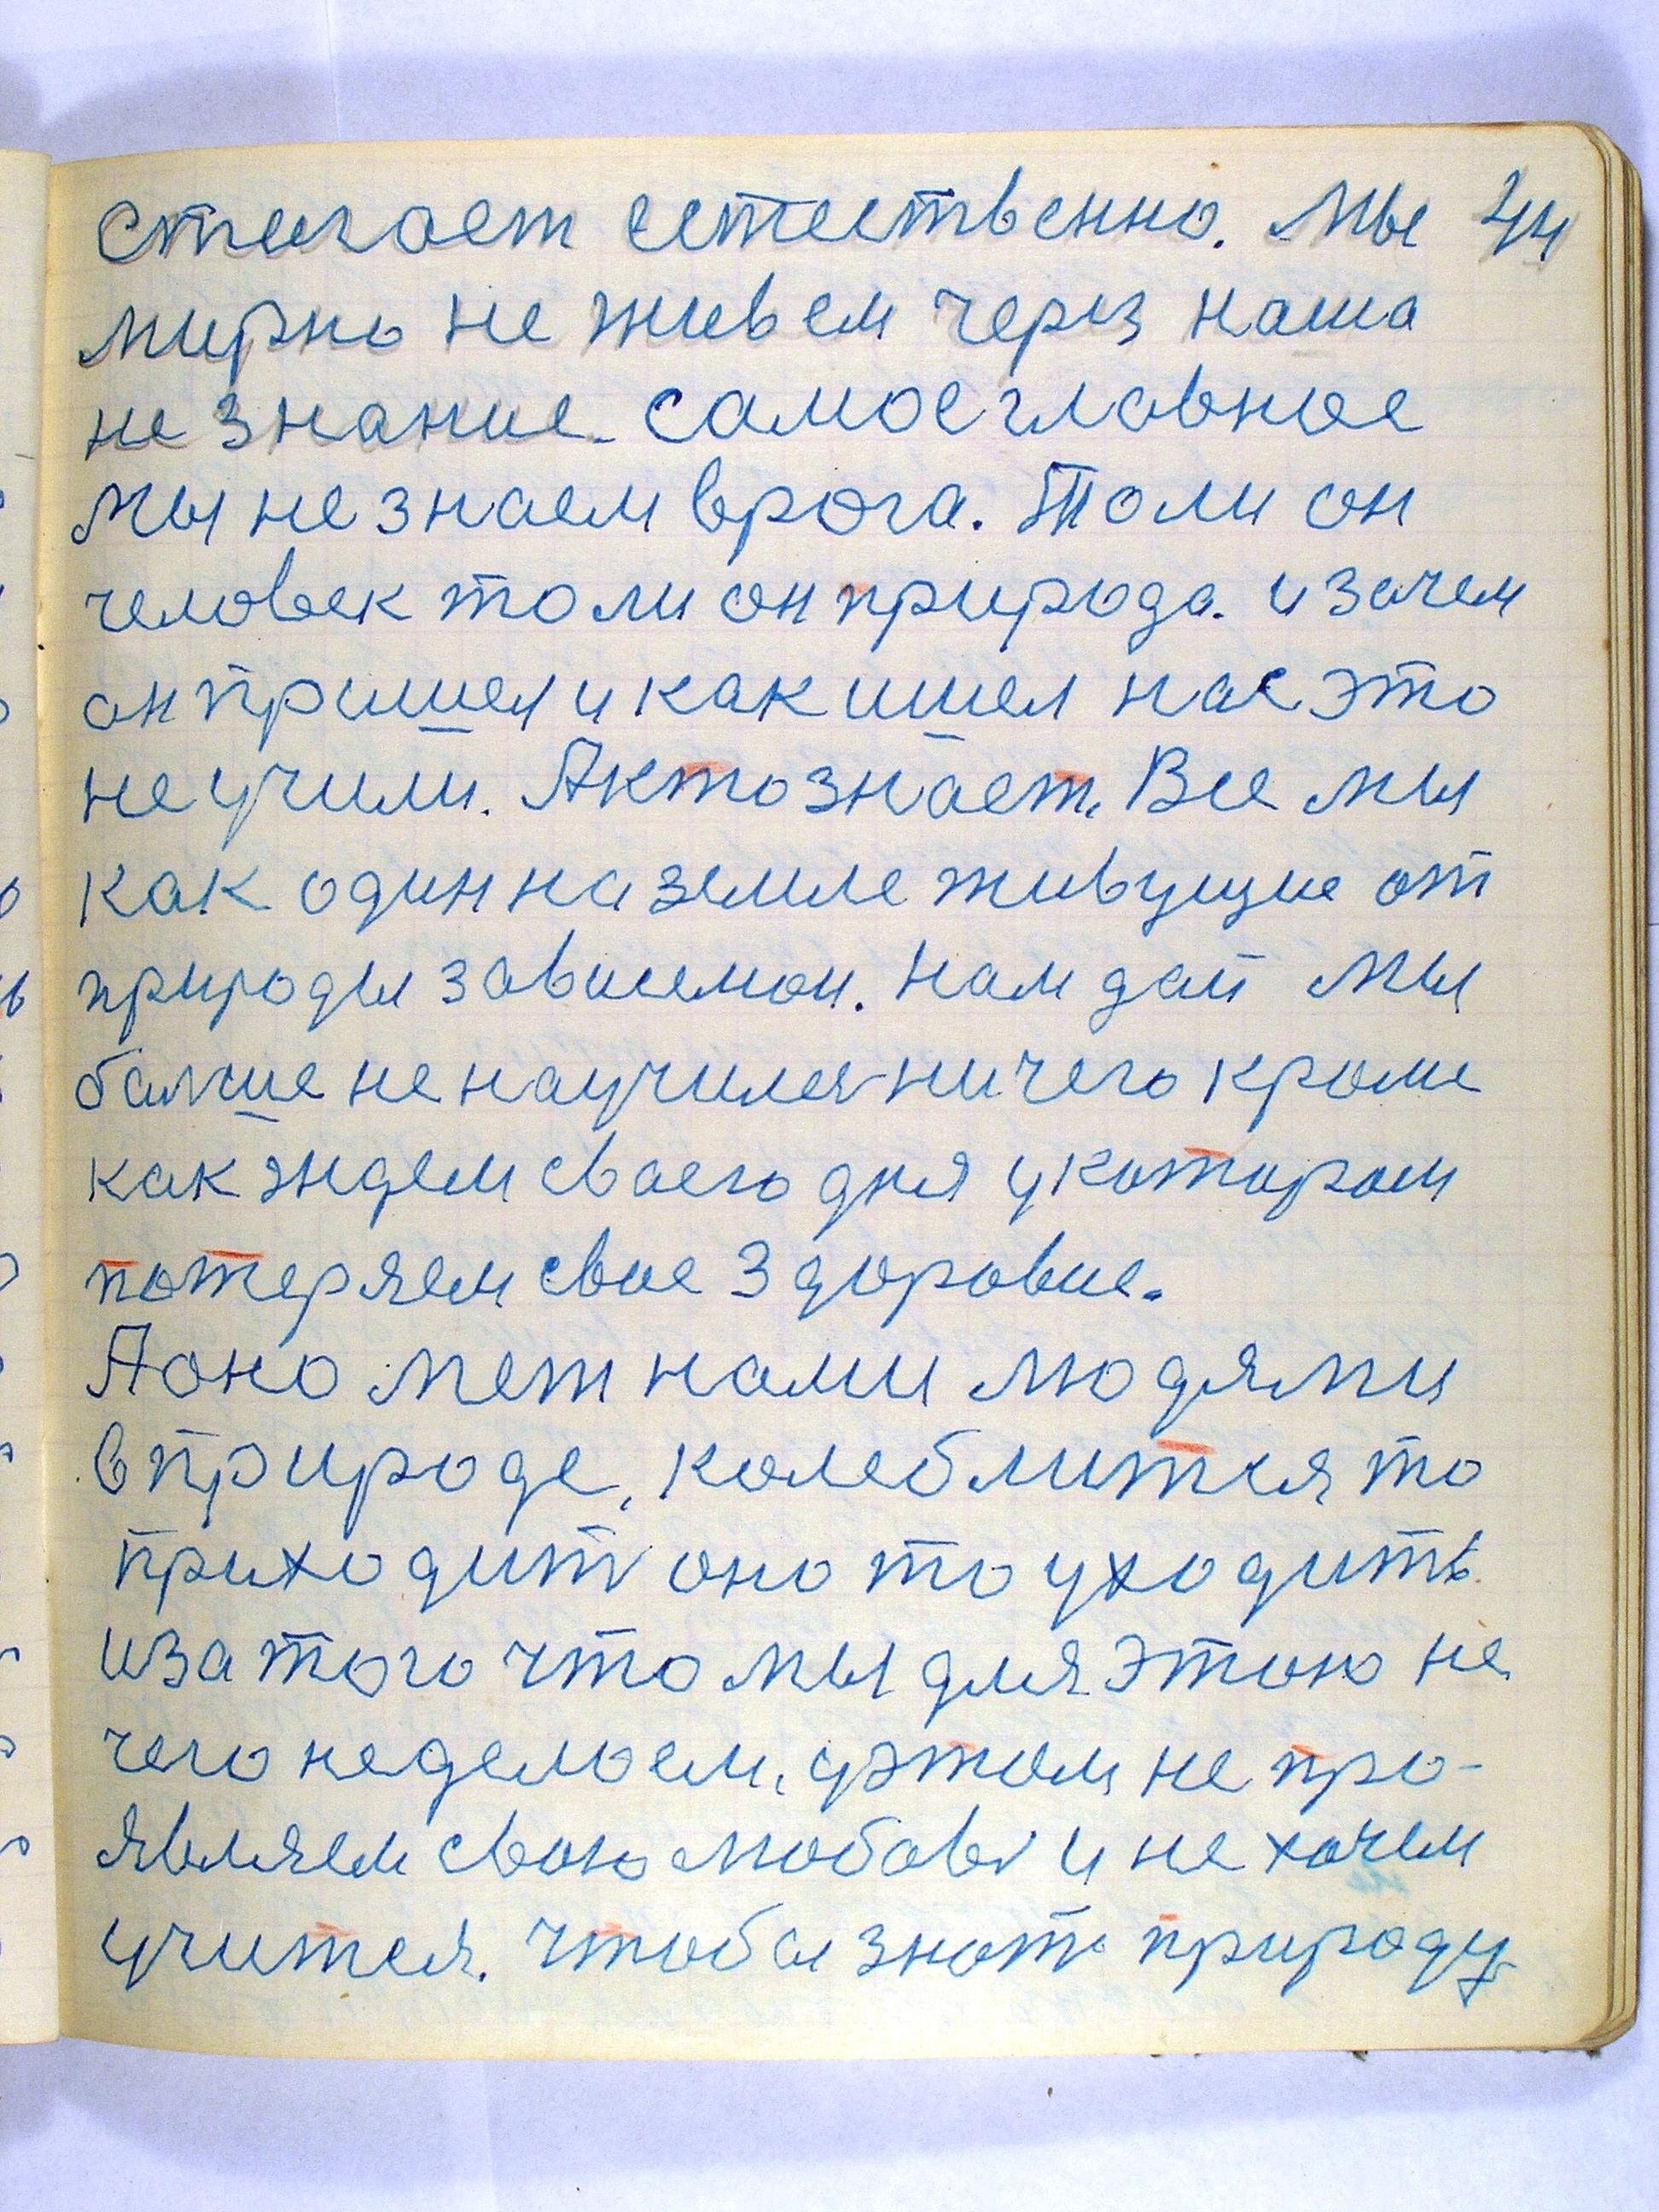 стигает естественно. Мы 44
мирно не живем через наша
не знание. самое главное
мы не знаем врага. Толи он
человек толи он природа. и зачем
он пришел и как ишел нас это
не учили. А кто знает. Все мы
как один на земле живущие от
природы зависемои. Нам дай мы
балше не научился ничего кроме
как ждем сваего дня у котором
потеряем свое здоровие.
А оно мет нами людями
в природе, колеблится то
приходит оно то уходить
иза того что мы для этого не
чего неделаем. у этом не про-
являем свою любовь и не хочем
учится. чтобы знать природу